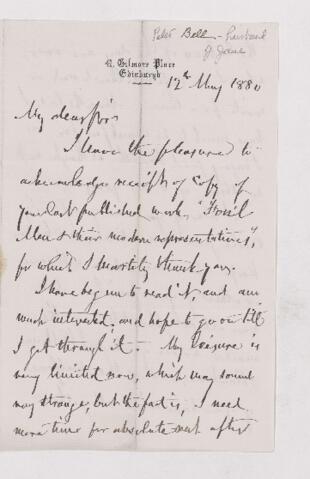 Peter Bell - husband
of Jane
42, Gilmore Place
Edinburgh
12th May 1880
My dear Sir
I have the pleasure to
acknowledge receipt of copy of
your last published work, "Fossil
Men & their modern representatives",
for which I heartily thank you.
I have begun to read it, and am
much interested, and hope to go on till
I get through it. My leisure is
very limited now, which may sound
very strange, but the fact is, I need
more time for absolute rest after